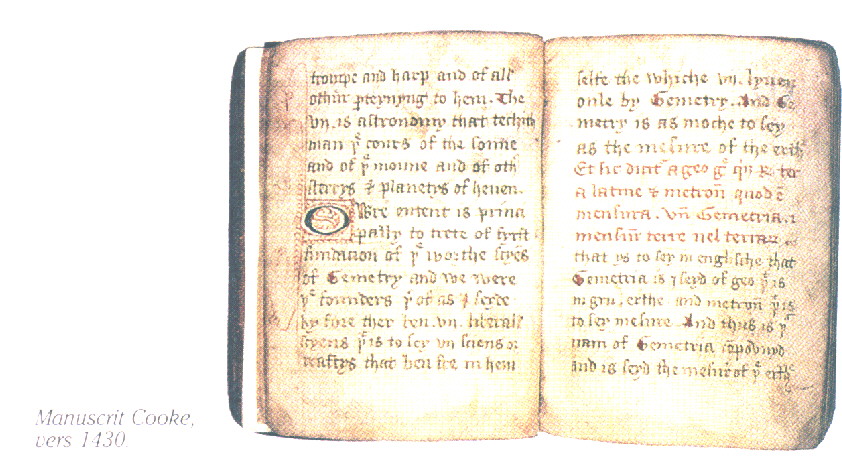 trompe and harp and of all
othur pteynyng to hem. The
vn. is astronomy that techith
man yͤ cours of the sonne
and of yͤ moune and of oth
sterrys & planetys of heuen.
Owre entent is princi
pally to trete of fyrst
fundacion of yͤ worthe scyēs
of Gemetry and we were
yͤ founders yͤ of as I seyde
by fore ther ben vn. liberall
scyens yͭ is to sey vn sciens or
craftys that ben fre in hem
selfe the whiche vn. lyuen
only by Gemetry. And Ge
metry is as moche to sey
as the mesure of the erth
Et sic dicit a geo gͤ qn R ter
a latine & metron quod ē
mensura. vn Gemetria. i
mensur terre uel terrar
that ys to sey in englische that
Gemetria is I seyd of geo yͭ is
in gru. erthe and metron yͭ is
to sey mesure. And thus is yͥ
nam of Gemetria cōpovnyd
and is seyd the mesur of yͤ erth
Manuscrit Cooke,
vers 1430.